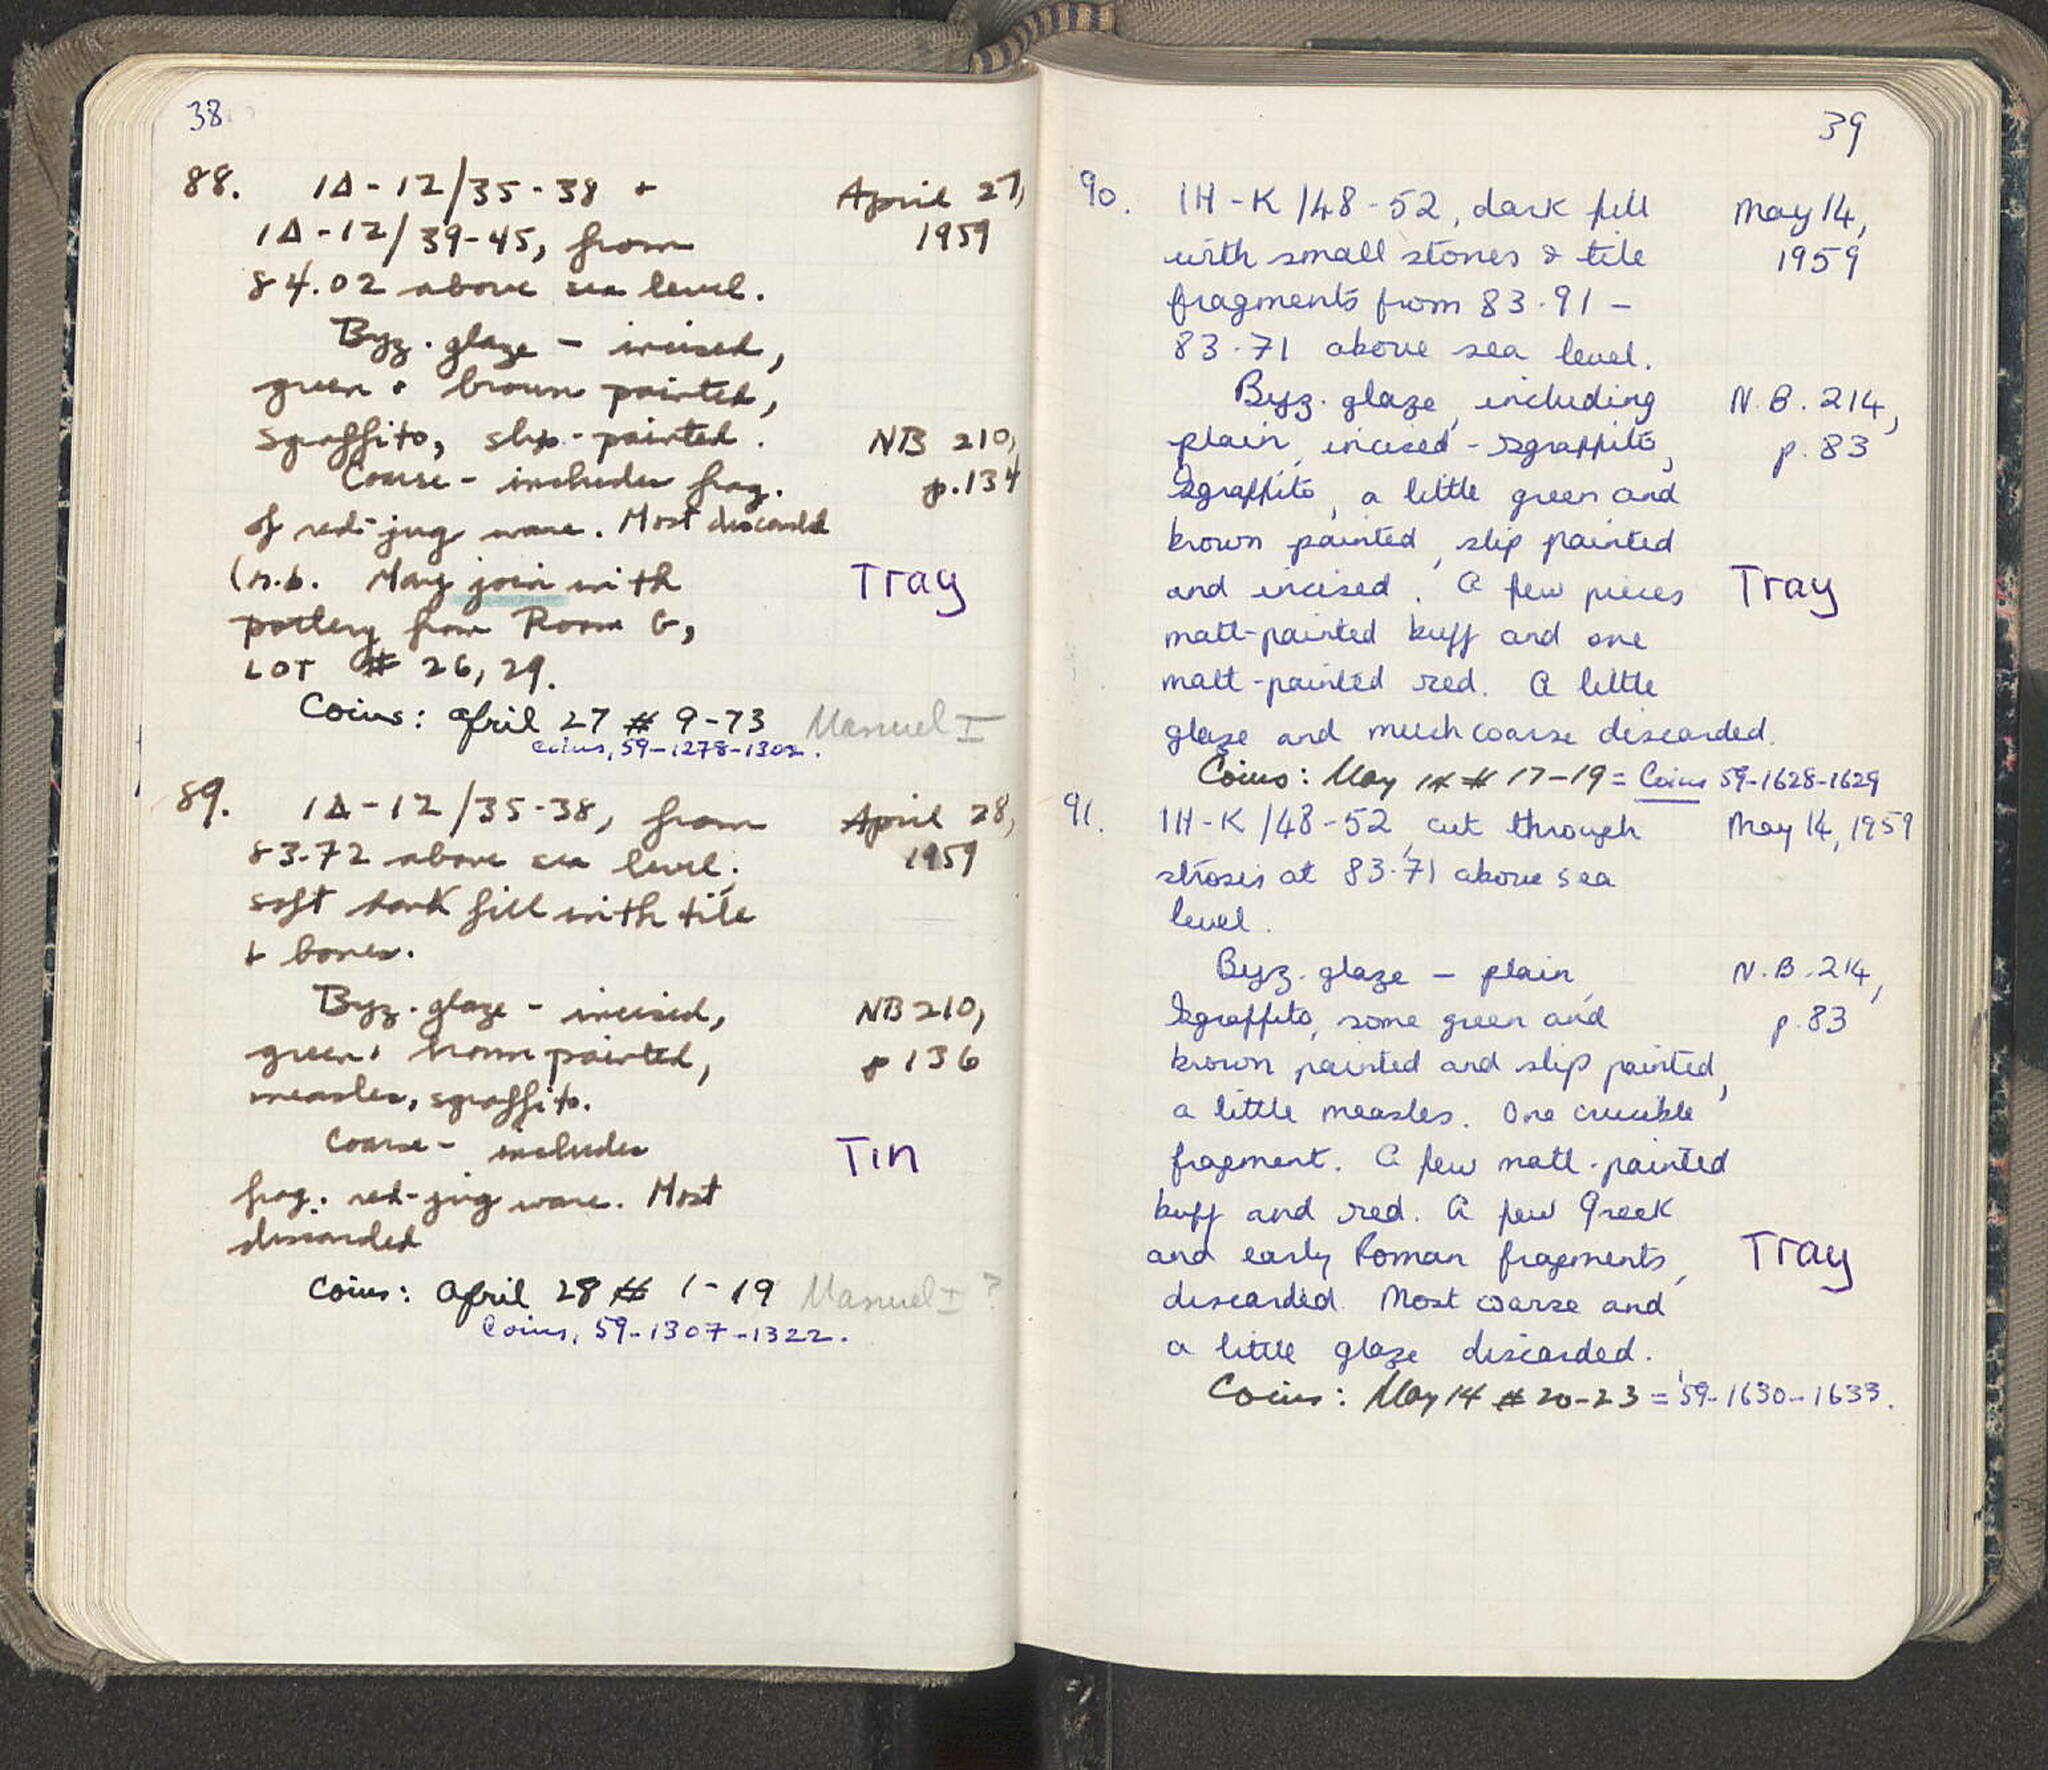 38
88. 1Δ-12/35-38 + April 27,
1Δ-12/39-45, from 1959
84.02 above sea level.
Byz. glaze - incised,
green + brown painted,
sgraffito, slip-painted. NB 210,
Coarse - includes frag. p.134
of red-jug ware. Most discarded
(n.b. May join with Tray
pottery from Room G,
LOT # 26, 29.
Coins: April 27 # 9-73 Manuel I
Coins, 59-1278-1302.
89. 1Δ-12/35-38, from April 28,
83.72 above sea level. 1959
soft dark fill with tile
+ bones.
Byz. glaze - incised, NB 210,
green + brown painted, p 136
measles, sgraffito.
Coarse - includes Tin
frag. red-jug ware. Most
discarded
Coins: April 28 # 1-19 Manuel I ?
Coins, 59-1307-1322.
39
90. 1H-K/48-52, dark fill May 14,
with small stones & tile 1959
fragments from 83.91 -
83.71 above sea level.
Byz. glaze, including N.B. 214,
plain, incised-sgraffito, p. 83
Sgraffito, a little green and
brown painted, slip painted
and incised. A few pieces Tray
matt-painted buff and one
matt-painted red. A little
glaze and much coarse discarded.
Coins: May 14 # 17-19 = Coins 59-1628-1629
91. 1H-K/48-52, cut through May 14, 1959
strosis at 83.71 above sea
level.
Byz. glaze - plain, N.B. 214,
Sgraffito, some green and p. 83
brown painted and slip painted,
a little measles. One crucible
fragment. A few matt-painted
buff and red. A few Greek
and early Roman fragments, Tray
discarded. Most coarse and
a little glaze discarded.
Coins: May 14 # 20-23 = 59-1630-1633.